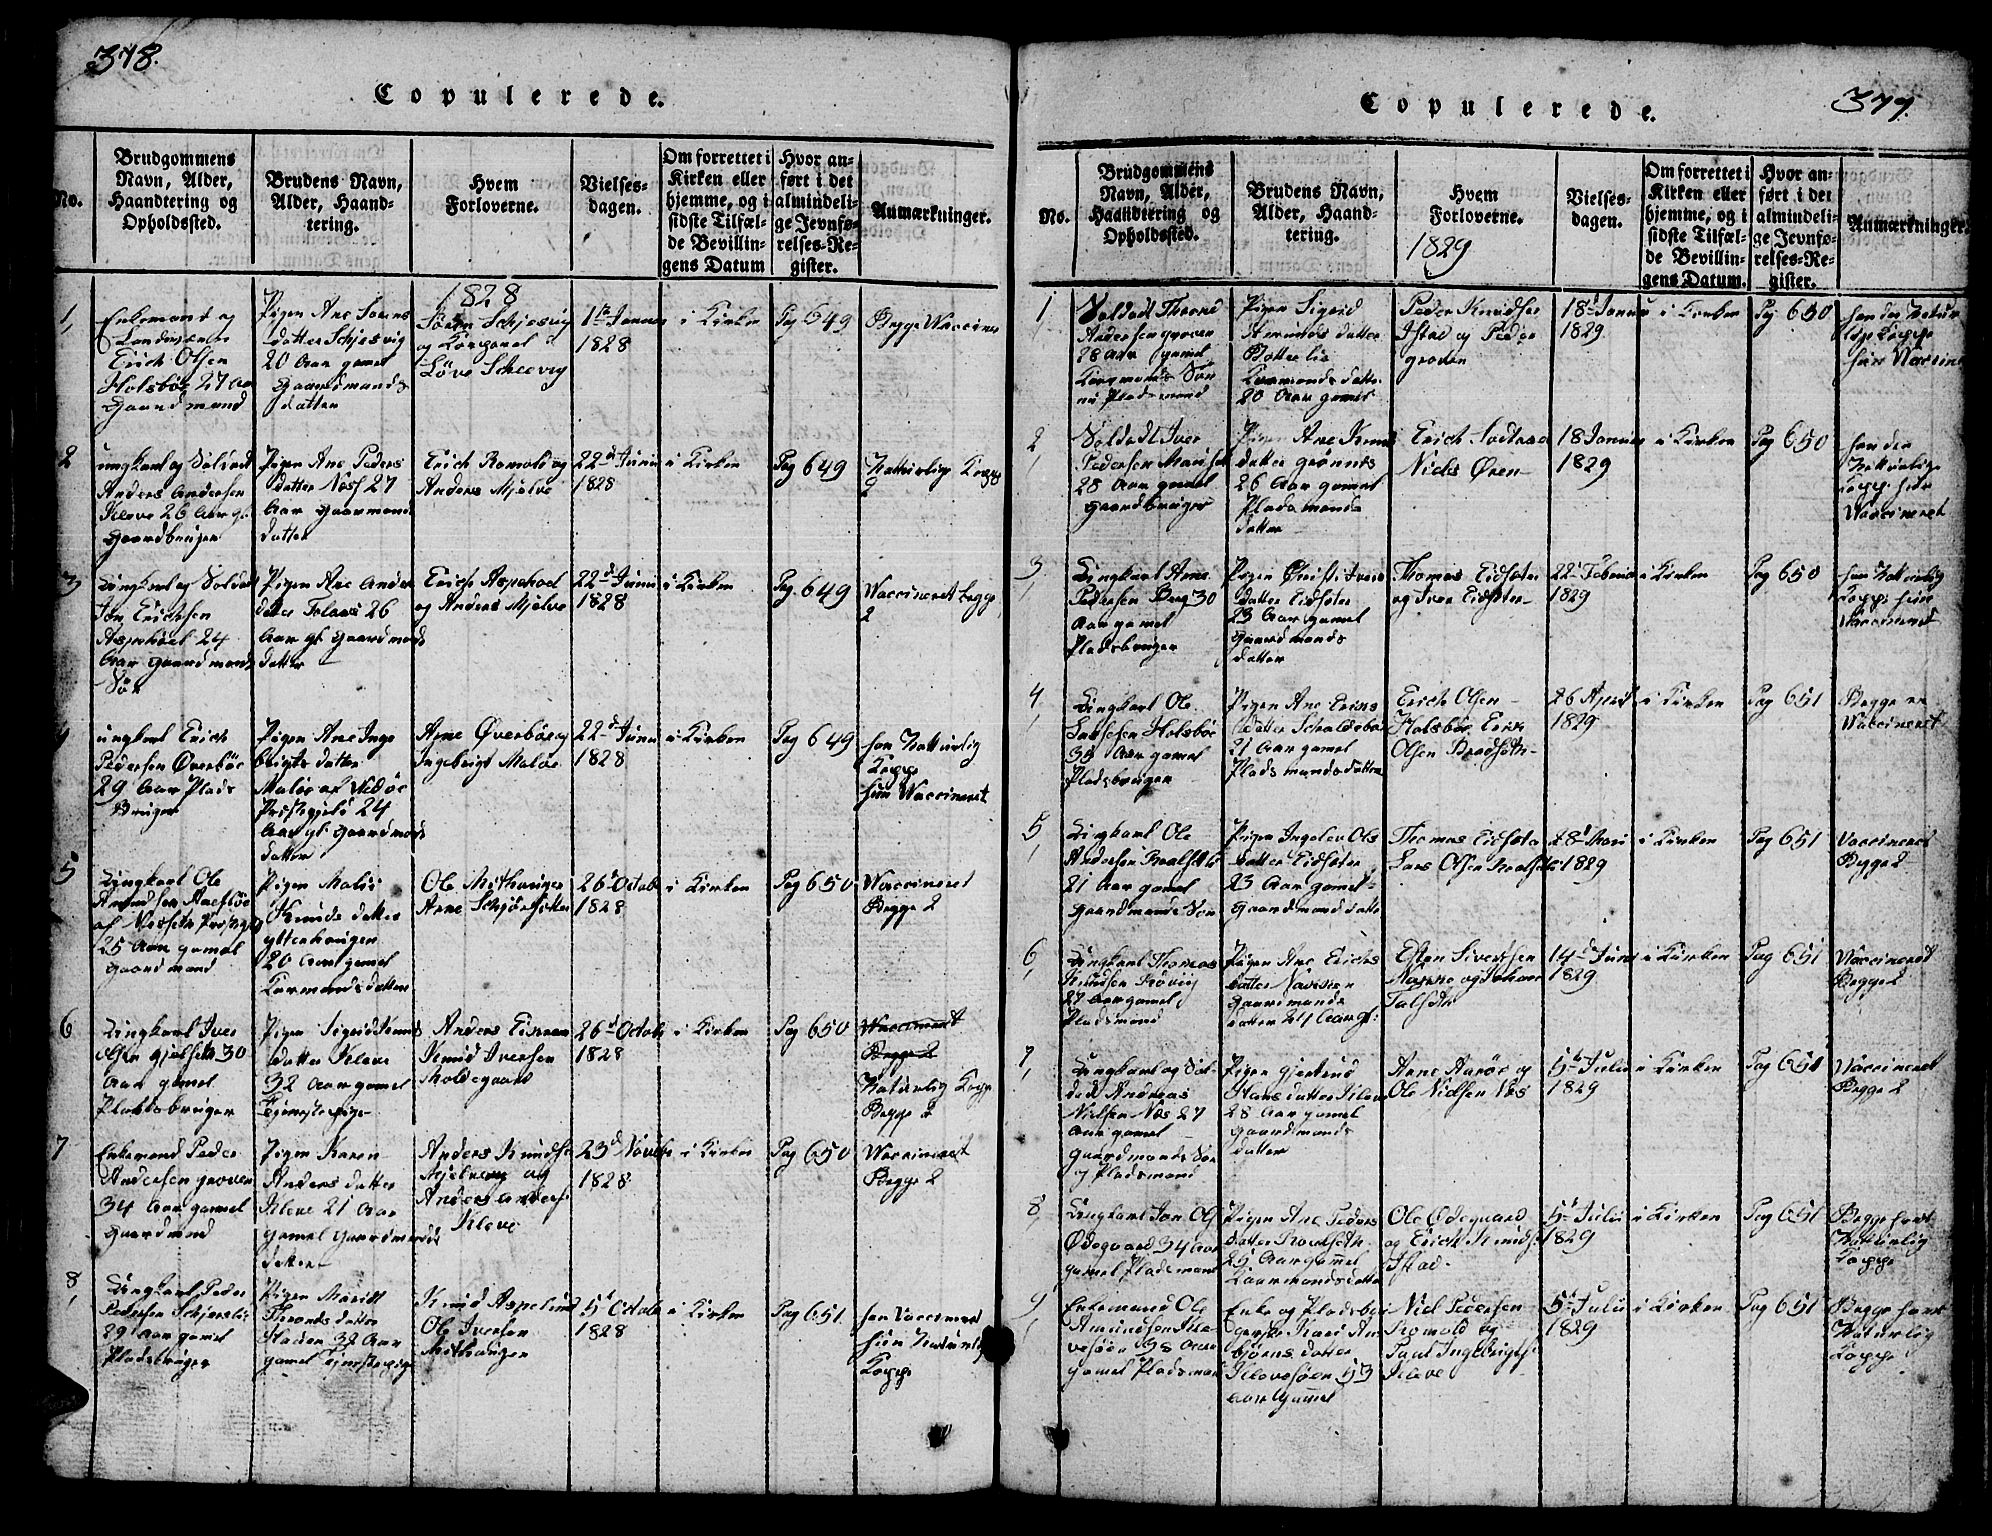 378.
Copulerede.
No.
Brudgommens
Navn, Alder,
Haandtering og
Opholdssted.
Brudens Navn,
Alder, Haand-
tering.
Hvem
Forloverne.
Vielses-
dagen.
Om forrettet i
Kirken eller
hjemme, og i
sidste Tilfæl-
de Bevillin-
gens Datum
Hvor an-
ført i det
almindeli-
ge Jevnfø-
relses-Re-
gister.
Anmærkninger.
1828
1,
Enkemand og
Erich Olsen
Holsbøe 27 Aar
Gaardmand
Pigen Ane Sørens
datter Schjesvig
20 Aar gamel
Gaardmands
datter
1828
i Kirken
Pag 649
Begge Vaccines
2
ungkarl og Soldat
Anders Andersen
Kleve 26 Aar gl.
Gaardbruger
Pigen Ane Peders
datter Næss 27
Aar Gaarmands
datter
Erich Romold og
Anders Mjelve
22d Juni
1828
i Kirken
Pag 649
Natturlig Kopper
2
3
Ungkarl og Soldat
Jon Erichsen
Aspehoel 24
Aar Gaardmands
Søn
Pigen Ane Anders
datter 26
Aar gl. Gaardmands
datter
Erich Aspehoel
og Anders Mjelve
22d Juni
1828
i Kirken
Pag. 649
Vaccineret begge
2
4
ungkarl Erich
Pedersen Øverbøe
29 Aar Plads
Bruger
Pigen Ane Inge
brigts datter
Maløe af Vedøe
Præstegjeld 24
Aar gl. Gaardmands
datter
Arne Øverbøe og
Ingebrigt Maløe
22d Juni
1828
i Kirken
Pag 649
han Natturlig
Kopp
hun Vaccineret
5
Ungkarl Ole
af Nessets Prstgjl
25 Aar gamel
Gaardmand
Pigen Malii
Knuds datter
ytterhaugen
20 Aar gamel
Kaarmands datter
Ole Mithauger
Arne
26d Octob
1828
i Kirken
Pag 650
Vaccineret
Begge 2
6
Ungkarl Iver
Olsen Gjelseth 30
Aar gamel
Pladsbruger
Pigen Sigrid Knuds
datter Kleve
32 Aar gamel
Tjenestepige
Anders
Knud Iversen
Moldegaard
26d Octob
1828
i Kirken
Pag 650
Vaccineret
Begge 2
Naturlig Kopp
Begge 2
7
Enkemand Peder
Andersen Groven
34 Aar gamel
Gaardmand
Pigen Karen
Anders datter
Kleve 21 Aar
gamel Gaardmands
datter
Anders Knudsen
Mjelve og
Anders Anders
Kleve
23d Novbr
1828
i Kirken
Pag 650
Vaccineret
Begge 2
8,
Ungkarl Peder
Pedersen
29 Aar gamel
Pladsbruger
Pigen Maridt
Thronds datter
32 Aar
gamel Tjenstepige
Knud Aspelund
Ole Iversen
Mithaugen
5d Octob
1828
i Kirken
Pag 651
han Vaccineret
hun Naturlig
Kopp
379.
Copulerede.
No.
Brudgommens
Navn, Alder,
Haandtering og
Opholdssted.
Brudens Navn,
Alder, Haand-
tering.
Hvem
Forloverne.
1829
Vielses-
dagen.
Om forrettet i
Kirken eller
hjemme, og i
sidste Tilfæl-
de Bevillin-
gens Datum.
Hvor an-
ført i det
almindeli-
ge Jevnfø-
relses-Re-
gister.
Anmærkninger.
1,
Soldat Thrond
Andersen groven
28 Aar gamel
Kaarmands Søn
nu Pladsmand
Pigen Sigrid
Amunds datter
Batterlie
Kaarmands datter
20 Aar gamel
Peder Knudsen
Istad og Peder
groven
18d Januar
1829
i Kirken
Pag 650
han den Natur
lige Kopper
hun Vaccineret
2,
Soldadt Iver
Pedersen
28 Aar gamel
Gaardbruger
Pigen Ane Knuds
datter grønnes
26 Aar gamel
Pladsmands
datter
Erich
Niels Øren
18 Januar
1829
i Kirken
Pag 650
han den
Natturlige
Kopp. hun
Vaccineret
3,
Ungkarl Arne
Pedersen Berg 30
Aar gamel
Pladsbruger
Pigen Christi Ivers
datter Eidseter
23 Aar gamel
Gaardmands
datter
Thomas Eidseter
og Iver Eidseter
22d Februa
1829
i Kirken
Pag 650
han Natturlig
Kopp. hun
Vaccineret
4,
Ungkarl Ole
Larsen Holsbøe
35 Aar gamel
Pladsbruger
Pigen Ane Eriks
datter
21 Aar gamel
Pladsmandsdatter
Erich Olsen
Holsbøe Erik
Olsen
26 April
1829
i Kirken
Pag 651
Begge er
Vaccineret
5,
Ungkarl Ole
Andersen
21 Aar gamel
Gaardmands Søn
Pigen Ingelev Ols
datter Eidseter
23 Aar gamel
Gaardmand datter
Thomas Eidseter
Lars Olsen
28d Mari
1829
i Kirken
Pag 651
Vaccineret
Begge 2
6,
Ungkarl Thomas
Knudsen
27 Aar gamel
Pladsmand
Pigen Ane Erichs
datter
Gaardmands
datter 24 Aar gl.
Esten Sivertsen
14d Juni
1829
i Kirken
Pag 651
Vaccineret
Begge 2
7,
Ungkarl og Sol-
dat Andreas
Nielsen Næs 27
Aar gamel
Gaardmands Søn
og Pladsmand
Pigen Gjertrud
Hans datter Kleve
28 Aar gamel
Gaardmands
datter
Arne Aarøe og
Ole Nielsen Næs
5d Juli
1829
i Kirken
Pag 651
Vaccineret
Begge 2
8,
Ungkarl Jon Ols
Ødegaard 34 Aar
gamel Pladsmand
Pigen Ane Peders
datter
25 Aar gamel
Kaarmands datter
Ole Ødegaard
og Erich Knuds
Istad.
5d Juli
1829
i Kirken
Pag 651
Begge havt
Naturlig
Kopper
9,
Enkemand Ole
Amundsen Kle-
vesøen
gamel Pladsman
Enke og Pladsbru
gerske Kari Am
bjørns datter
Klevesøen 53
Aar gamel
Niel Pedersen
Romold og
Ingebrigts
Kleve
5d Juli
1829
i Kirken
Pag 651
Begge havt
Naturlig
Kopper